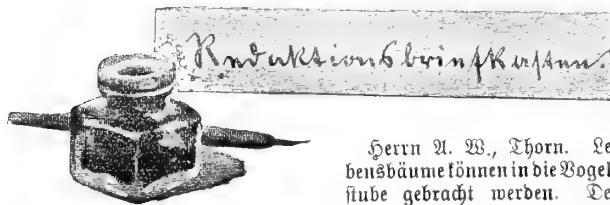 Redaktionsbriefkasten.
Herrn A. W., Thorn. Le-
bensbäume können in die Vogel-
stube gebracht werden. De